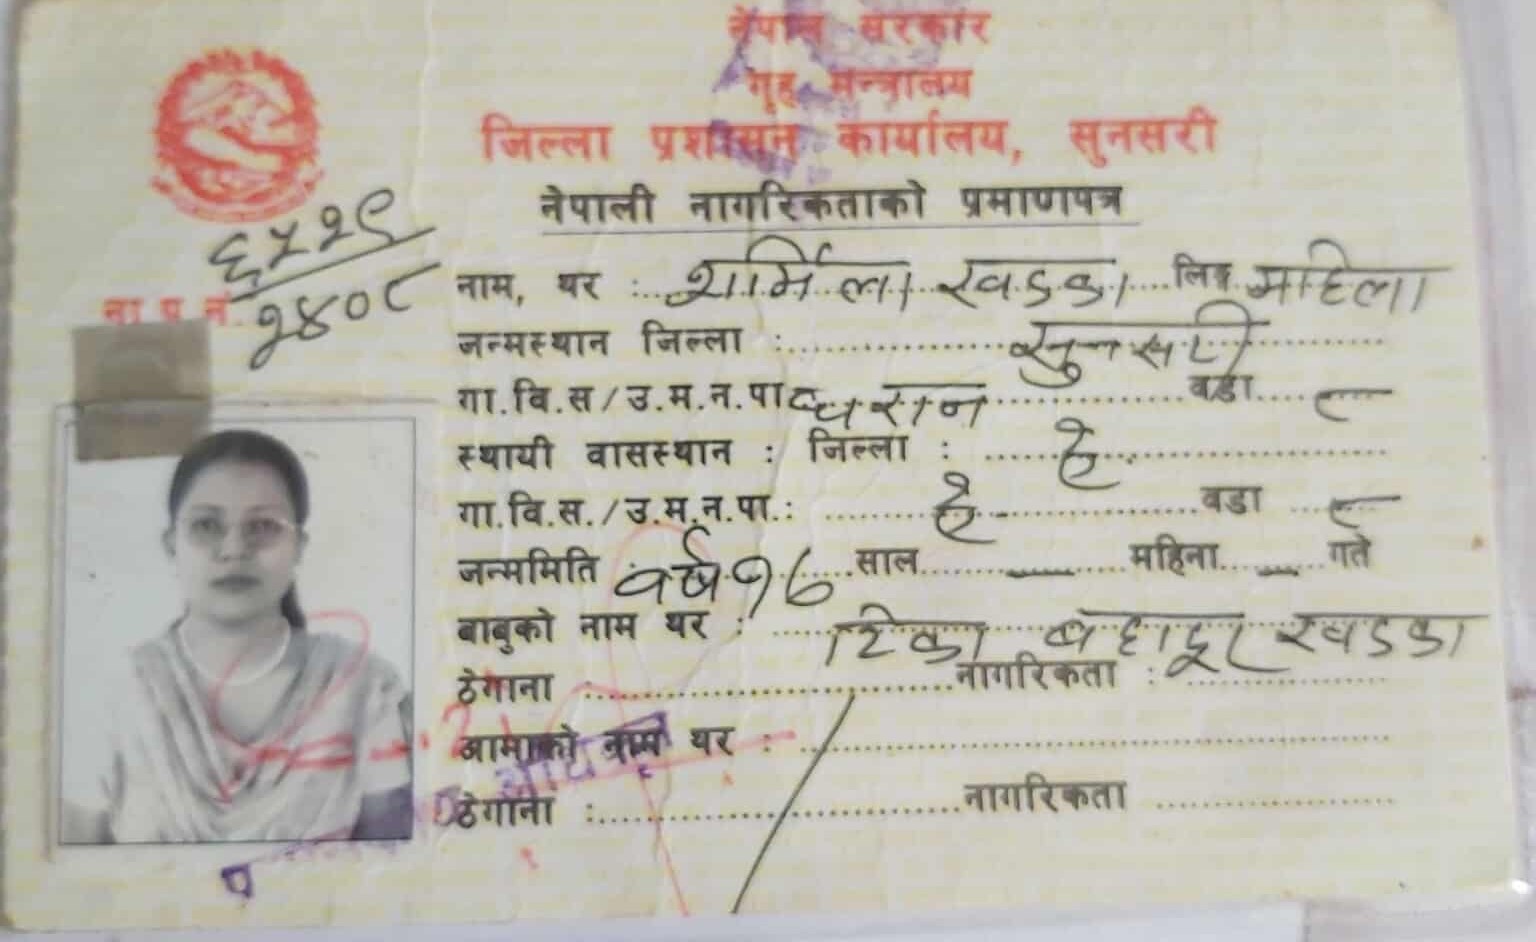 नेपाल सरकार
गृह मन्त्रालय
जिल्ला प्रशासन कार्यालय, सुनसरी
नेपाली नागरिकताको प्रमाणपत्र
ना.प्र.नं. ६५२९/२४०८
नाम, थर : शर्मिला खडका लिङ्ग महिला
जन्मस्थान जिल्ला : सुनसरी
गा.वि.स/उ.म.न.पा धरान वडा ८
स्थायी वासस्थान : जिल्ला : ऐ.
गा.वि.स./उ.म.न.पा.: ऐ. वडा ८
जन्ममिति वर्ष १६ साल — महिना — गते
बाबुको नाम थर : टिका बहादुर खडका
ठेगाना : नागरिकता :
आमाको नाम थर :
ठेगाना : नागरिकता